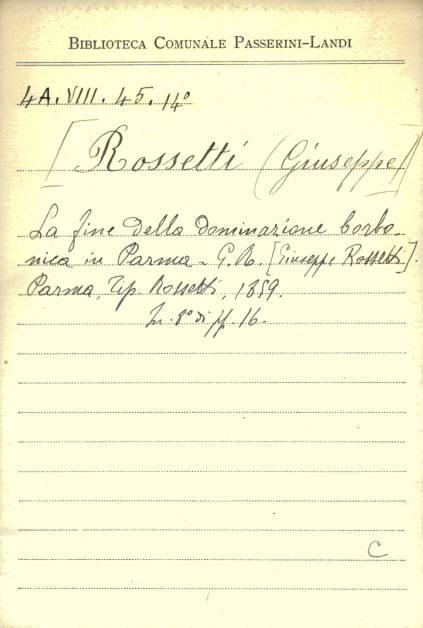 BIBLIOTECA COMUNALE PASSERINI-LANDI
4A. VIII. 45. 14º
[Rossetti (Giuseppe)]
La fine della dominazione borbo-
nica in Parma - G. R. [Giuseppe Rossetti].
Parma, Tip. Rossetti, 1859.
In 8º di pp. 16.
C